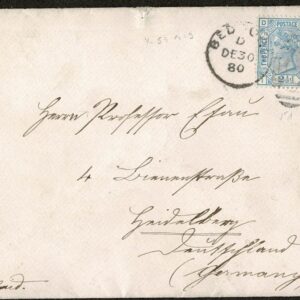 BED
D
DE 30
80
POSTAGE
Herrn Professor Esau
4 Bienenstraße
Heidelberg
Deutschland
(Germany